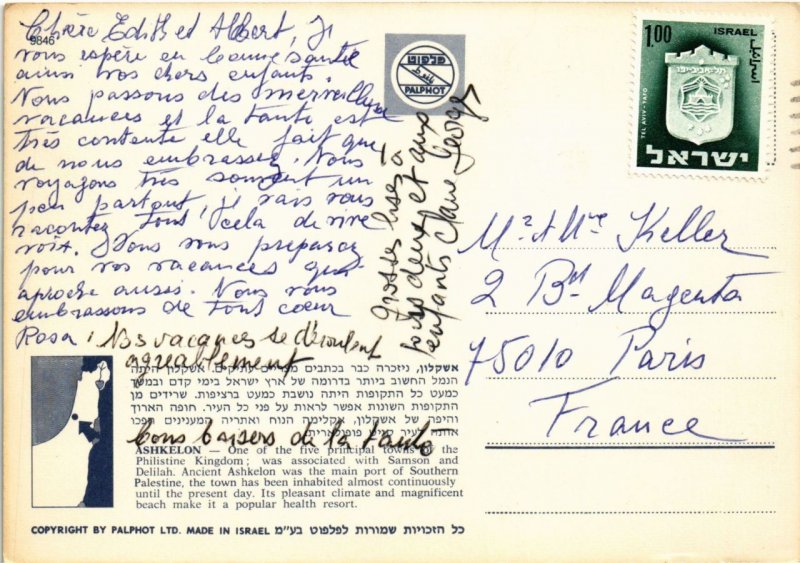 Chère Edith et Albert, Je
9846
vous espère en bonne santé
ainsi vos chers enfants.
Nous passons des merveilleuse
vacances et la tante est
très contente elle fait que
de nous embrasser. Nous
voyagons très souvent un
peu partout, je vais vous
racontez tout cela de vive
voix. Vous vous preparez
pour vos vacances qui
aproche aussi. Nous vous
embrassons de tout coeur
Rosa.
Nos vacances se déroulent
agreablement
Grosses bises à
vous deux et aux
enfants Claire George
bons baisers de la tante
פלפוט
PALPHOT
1.00 ISRAEL
اسرائيل
תל-אביב-יפו
TEL AVIV-YAFO
ישראל
Mr et Mme Keller
2 Bd Magenta
75010 Paris
France
אשקלון, ניזכרה כבר בכתבים מצריים עתיקים. אשקלון היתה
הנמל החשוב ביותר בדרומה של ארץ ישראל בימי קדם ובמשך
כמעט כל התקופות היתה נושבת כמעט ברציפות. שרידים מן
התקופות השונות אפשר לראות על פני כל העיר. חופה הארוך
והיפה של אשקלון, אקלימה הנוח ואתריה המענינים הפכו
אותה לעיר קיט פופולארית
ASHKELON — One of the five principal towns of the
Philistine Kingdom; was associated with Samson and
Delilah. Ancient Ashkelon was the main port of Southern
Palestine, the town has been inhabited almost continuously
until the present day. Its pleasant climate and magnificent
beach make it a popular health resort.
COPYRIGHT BY PALPHOT LTD. MADE IN ISRAEL כל הזכויות שמורות לפלפוט בע"מ